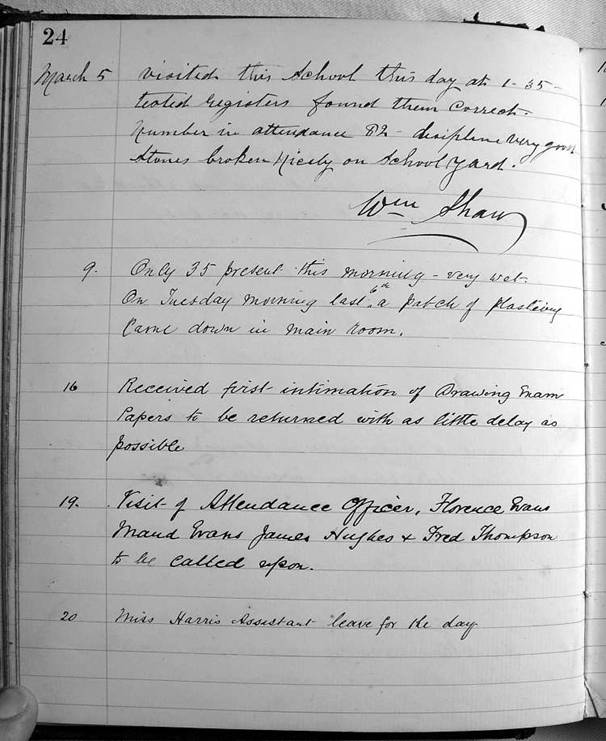 24
March 5 visited this School this day at 1-35-
tested registers found them Correct.
Number in attendance 82 - disipline very good
Stones broken Nicely on School Yard.
Wm Shaw
9. Only 35 present this morning - very wet.
On Tuesday morning last 6th a patch of plastering
Came down in main room.
16 Received first intimation of Drawing Exam
Papers to be returned with as little delay as
possible
19. Visit of Attendance Officer, Florence Evans
Maud Evans James Hughes & Fred Thompson
to be called upon.
20 Miss Harris Assistant leave for the day